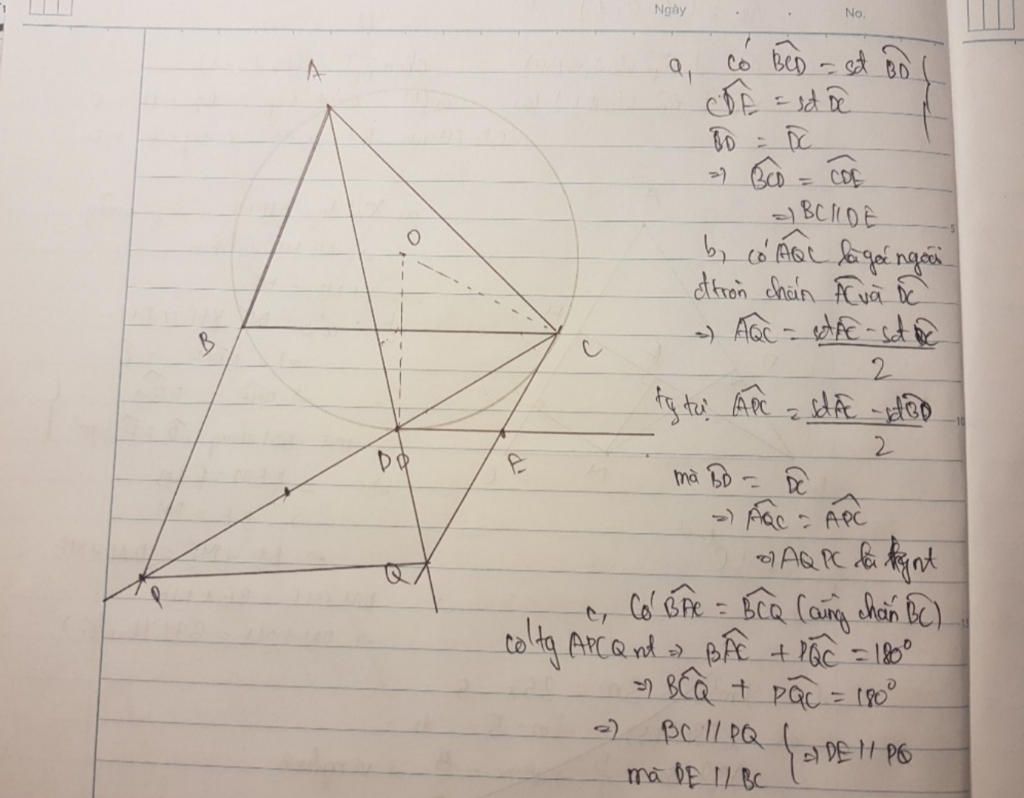 Ngày . . No.
A
O
B
C
D
E
P
Q
a, có BCD = sđ BD
CDE = sđ DC
BD = DC
=> BCD = CDE
=> BC // DE
b, có AQC là góc ngoài
đtròn chắn AC và DC
=> AQC = sđ AC - sđ DC
2
tg tự APC = sđ AC - sđ BD
2
mà BD = DC
=> AQC = APC
=> AQPC là tg nt
c, Có BAC = BCQ (cùng chắn BC)
có tg APCQ nt => BAC + PQC = 180°
=> BCQ + PQC = 180°
=> BC // PQ
mà DE // BC
=> DE // PQ